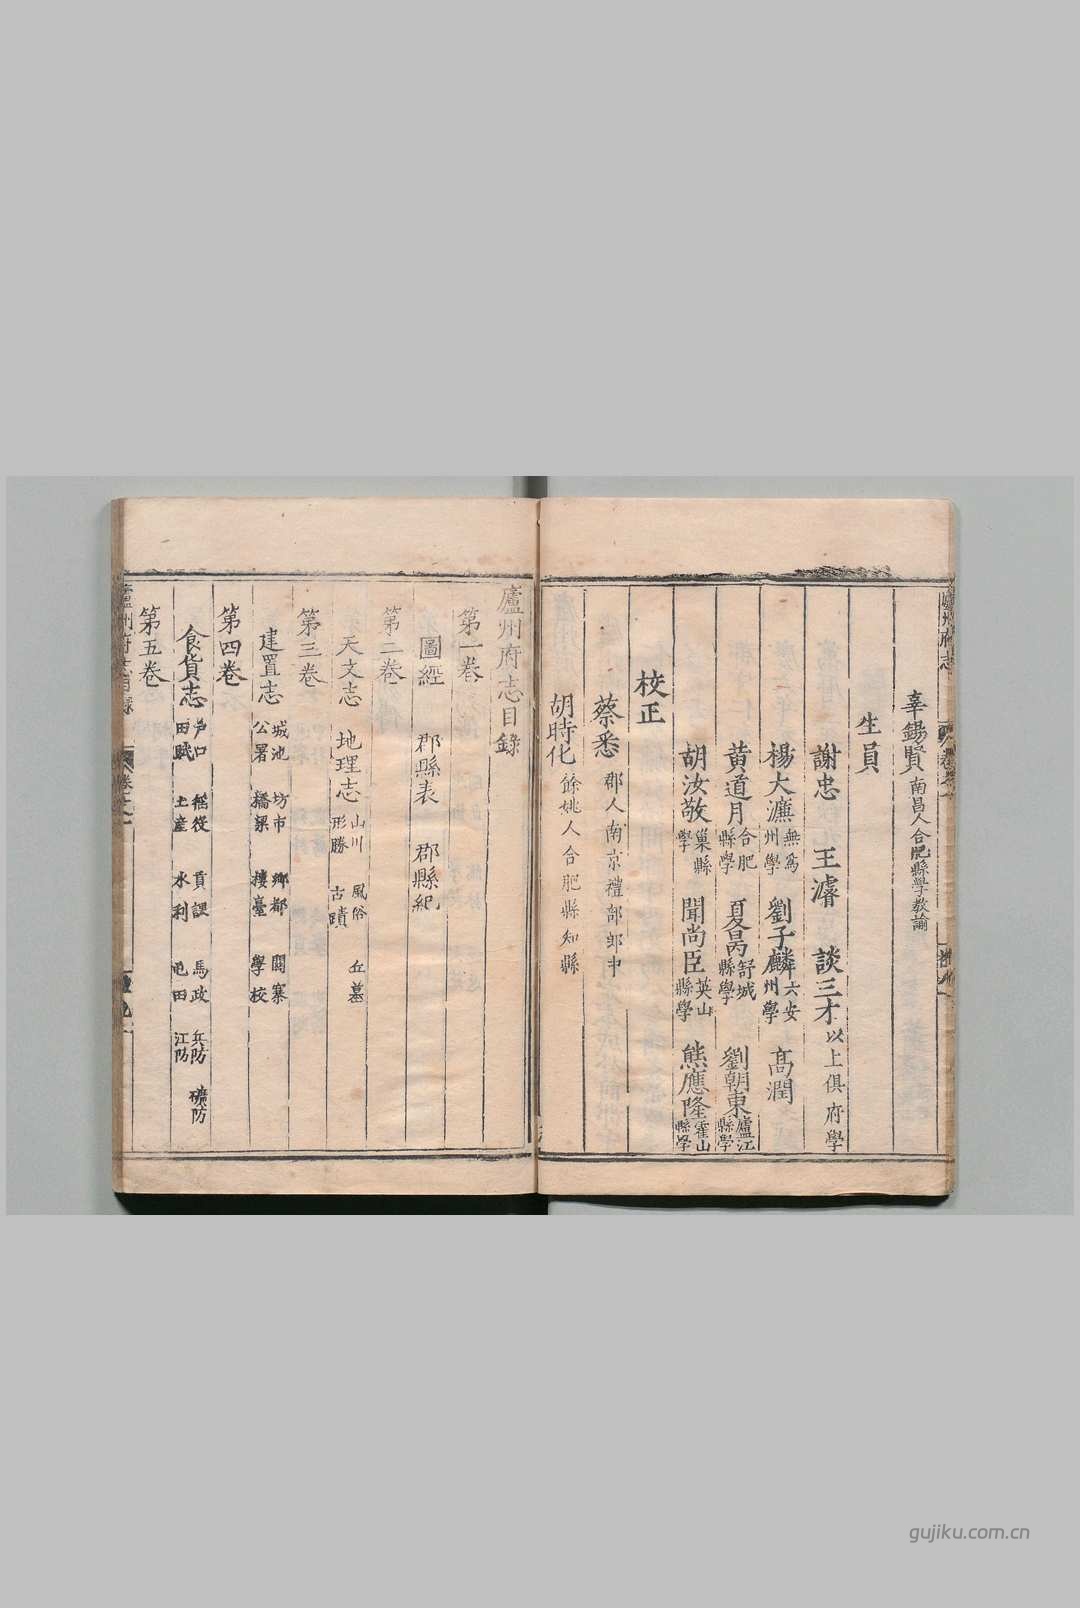 廬州府志
辜錫賢 南昌人合肥縣學教諭
生員
謝忠 王濬 談三才 以上俱府學
楊大濂 無為州學 劉子麟 六安州學 高潤
黃道月 合肥縣學 夏昺 舒城縣學 劉朝東 廬江縣學
胡汝敬 巢縣學 聞尚臣 英山縣學 熊應隆 霍山縣學
校正
蔡悉 郡人南京禮部郎中
胡時化 餘姚人合肥縣知縣
廬州府志目錄
第一卷
圖經 郡縣表 郡縣紀
第二卷
天文志 地理志 山川 形勝 風俗 古蹟 丘墓
第三卷
建置志 城池 公署 坊市 橋梁 鄉都 樓臺 關寨 學校
第四卷
食貨志 戶口 田賦 徭役 土產 貢課 水利 馬政 屯田 兵防 江防 礦防
第五卷
廬州府志目錄
gujiku.com.cn